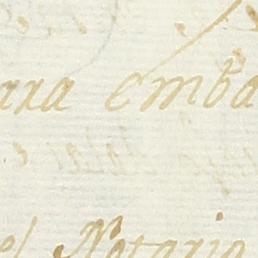 ara emba
el Notario